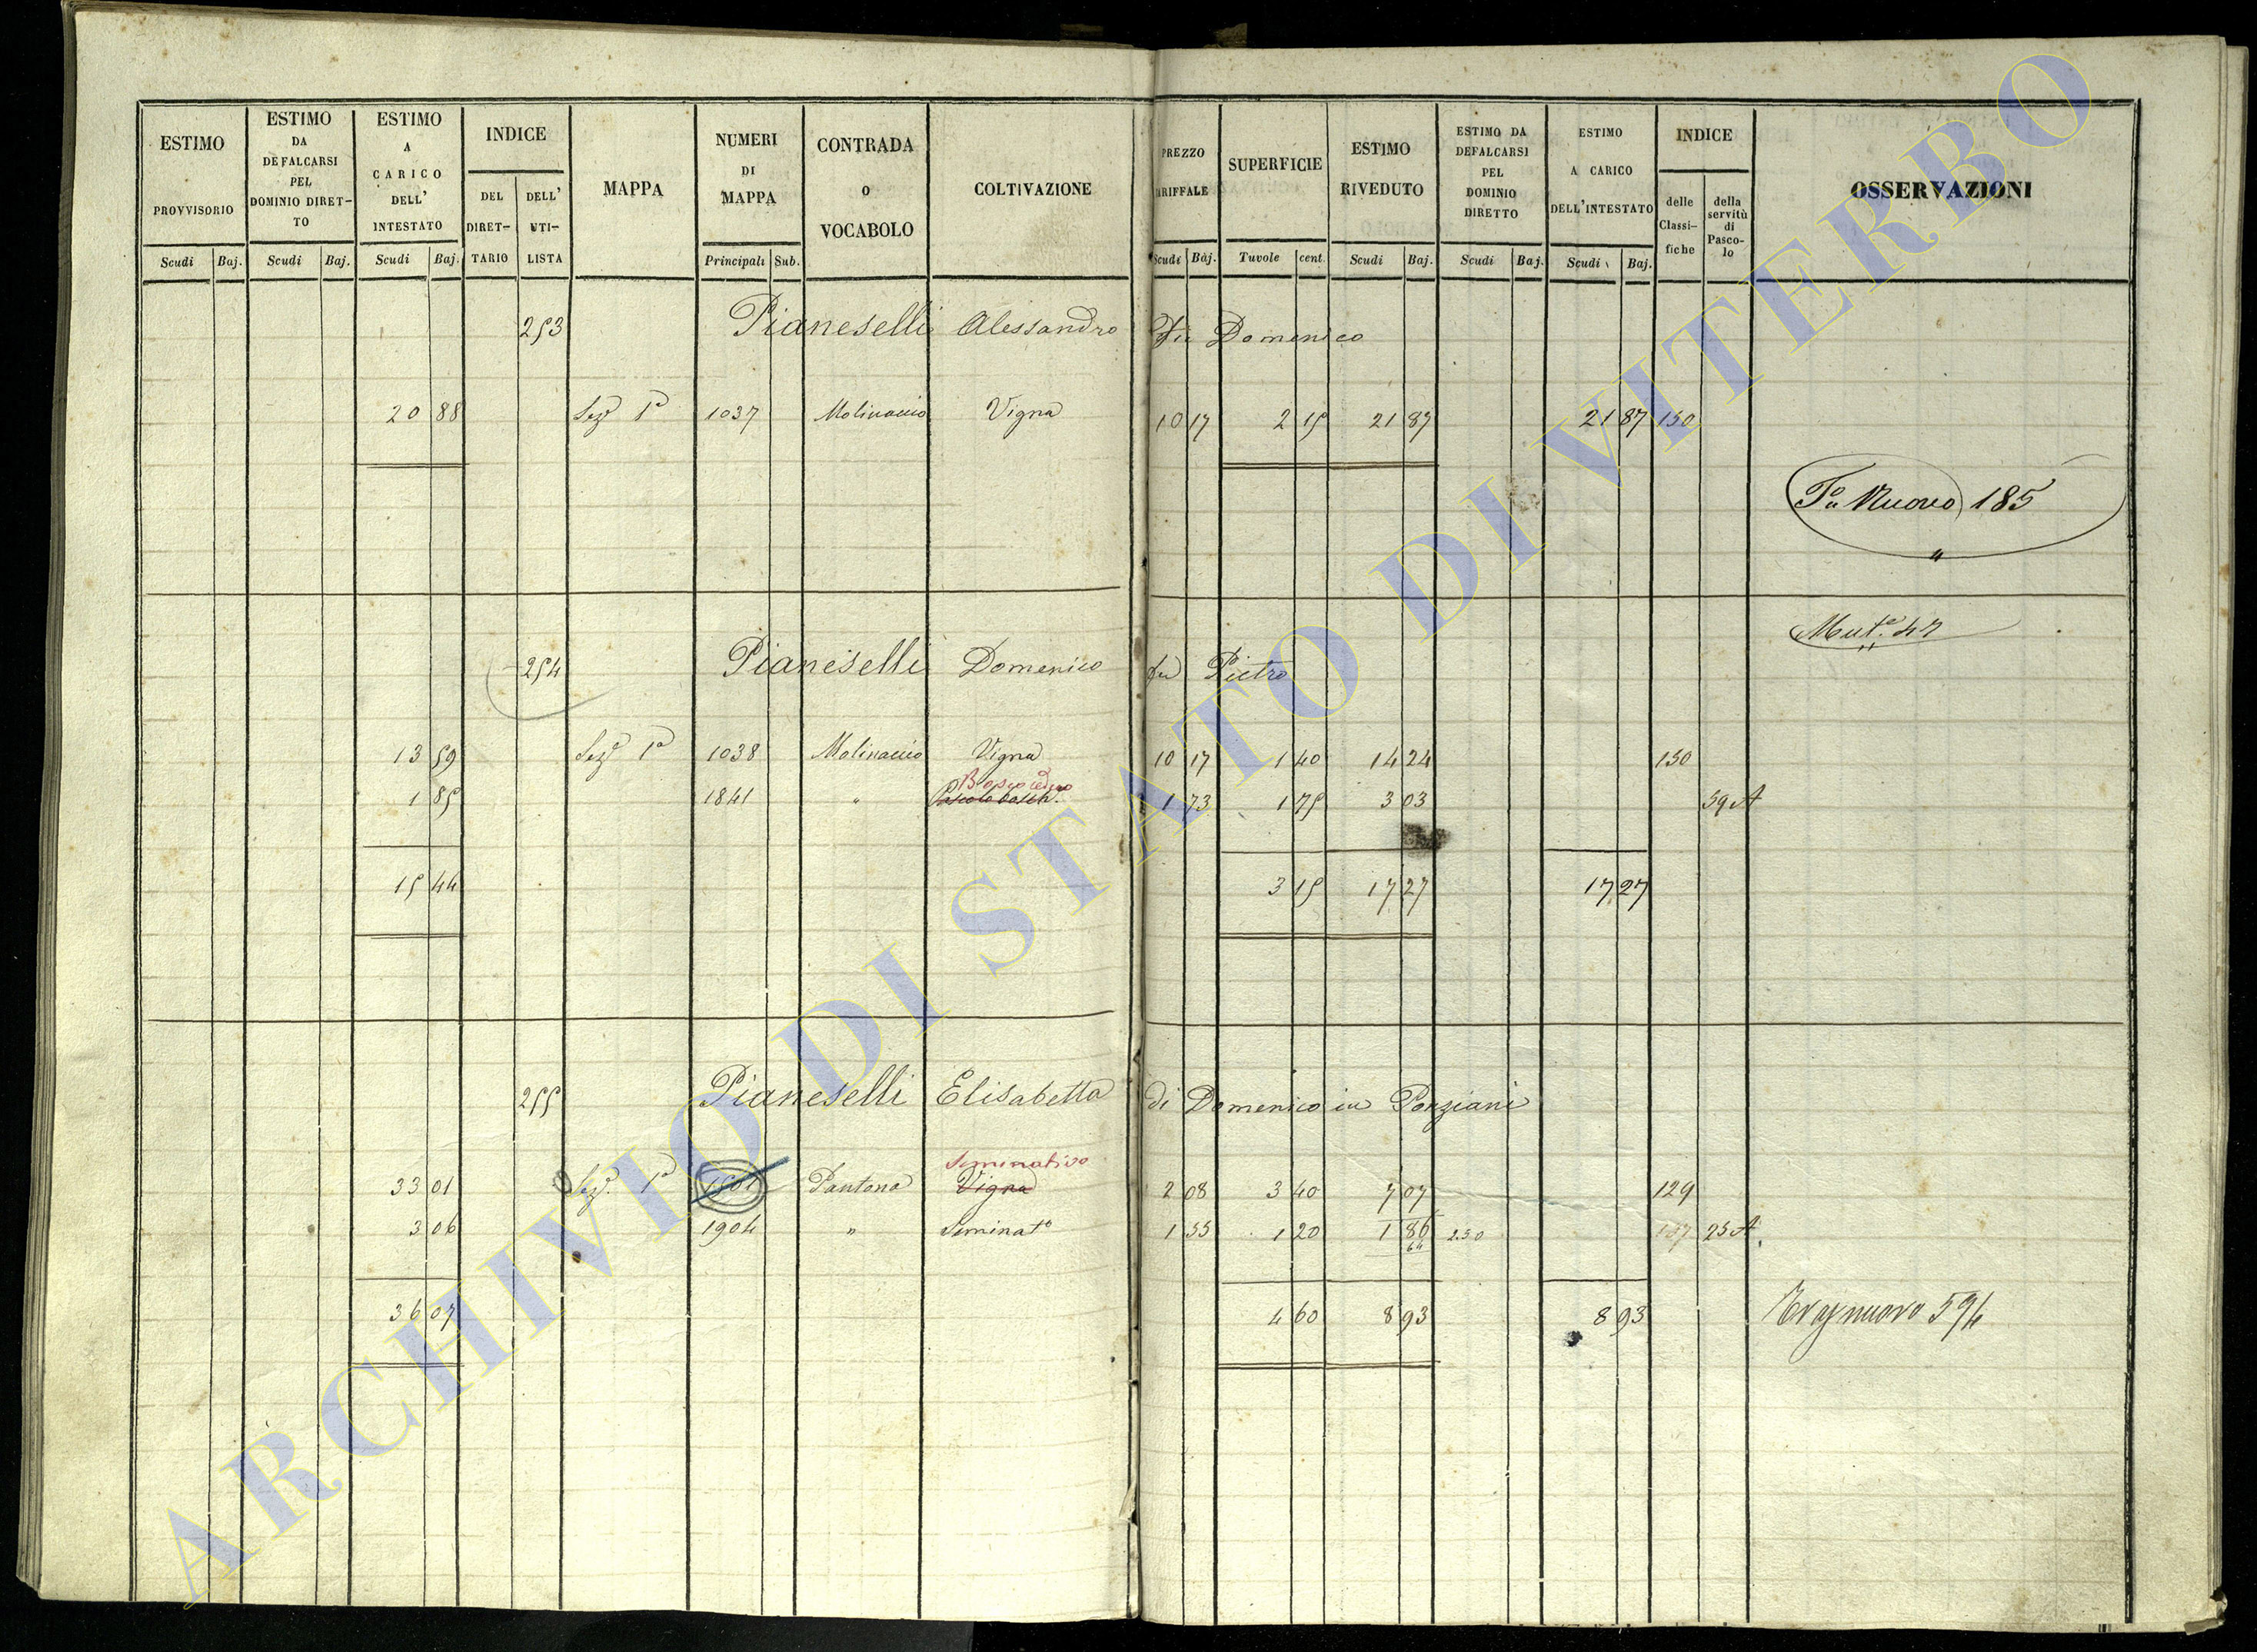 ESTIMO PROVVISORIO Scudi Baj.
ESTIMO DA DEFALCARSI PEL DOMINIO DIRET-TO Scudi Baj.
ESTIMO A CARICO DELL' INTESTATO Scudi Baj.
INDICE DEL DIRET-TARIO DELL' UTI-LISTA
MAPPA
NUMERI DI MAPPA Principali Sub.
CONTRADA O VOCABOLO
COLTIVAZIONE
PREZZO TARIFFALE Scudi Baj.
SUPERFICIE Tavole cent.
ESTIMO RIVEDUTO Scudi Baj.
ESTIMO DA DEFALCARSI PEL DOMINIO DIRETTO Scudi Baj.
ESTIMO A CARICO DELL'INTESTATO Scudi Baj.
INDICE delle Classi-fiche della servitù di Pasco-lo
OSSERVAZIONI
253 Pianeselli Alessandro Di Domenico
20 88 Sezе 1a 1037 Molinaccio Vigna 10 17 2 15 21 87 21 87 130
Nuovo 185
Mut.e 47
254 Pianeselli Domenico fu Pietro
13 59 Seze 1a 1038 Molinaccio Vigna 10 17 1 40 14 24 130
Bosco ceduo
1 85 1841 " Pascolo bosch. 1 73 1 75 3 03 59 A
15 44 3 15 17 27 17 27
255 Pianeselli Elisabetta di Domenico in Ponziani
Seminativo
33 01 Seze. 1a 1501 Pantana Vigna 2 08 3 40 7 07 129
3 06 1904 " Seminato 1 55 1 20 1 86 2.50 137 25 A
64
36 07 4 60 8 93 8 93 nuovo 594
ARCHIVIO DI STATO DI VITERBO